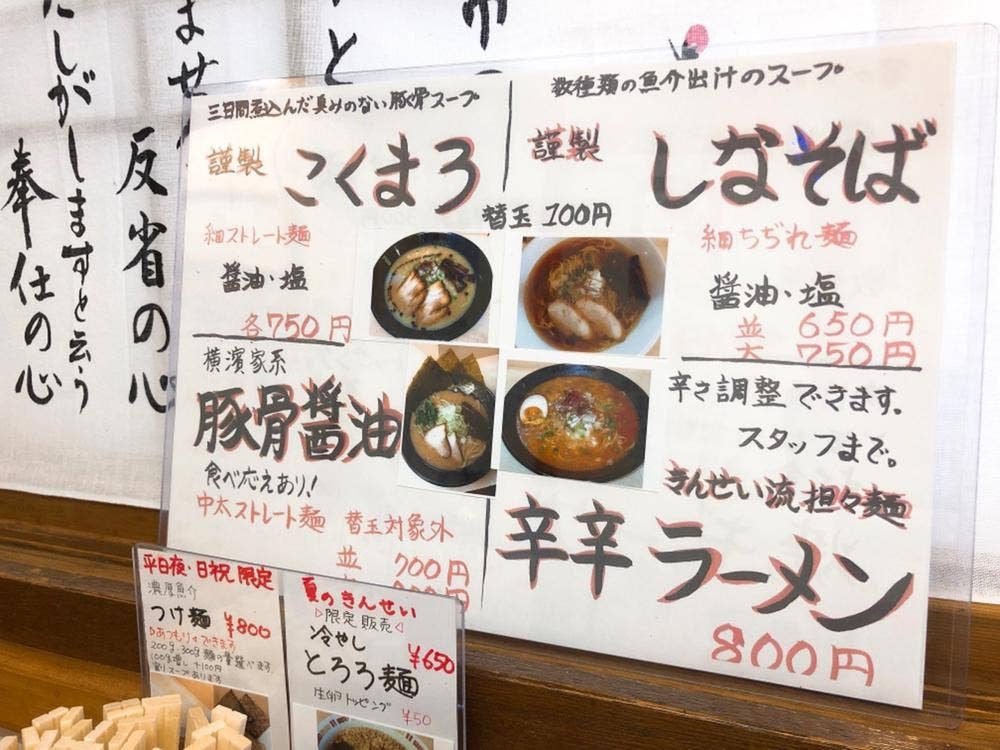 たしがしますと云う
奉仕の心
反省の心
ませ
と
三日間煮込んだ臭みのない豚骨スープ
謹製
こくまろ
替玉 100円
細ストレート麺
醤油・塩
各750円
数種類の魚介出汁のスープ
謹製
しなそば
細ちぢれ麺
醤油・塩
並 650円
大 750円
横濱家系
豚骨醤油
食べ応えあり!
中太ストレート麺
替玉対象外
並 700円
辛さ調整できます。
スタッフまで。
きんせい流担々麺
辛辛ラーメン
800円
平日夜・日祝限定
濃厚魚介
つけ麺 ¥800
あつもりもできます
200g、300g 麺の量選べます
100g増し +100円
割りスープあります
夏のきんせい
▷限定販売◁
冷やし
とろろ麺
¥650
生卵トッピング ¥50